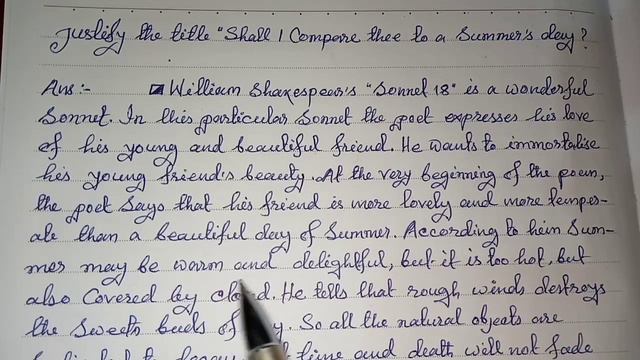 Justify the title "Shall I Compare thee to a Summer's day?
Ans:- William Shakespear's "Sonnet 18" is a wonderful
Sonnet. In this particular Sonnet the poet expresses his love
of his young and beautiful friend. He wants to immortalise
his young friend's beauty. At the very beginning of the poem,
the poet says that his friend is more lovely and more temper-
ate than a beautiful day of Summer. According to him Sum-
mer may be warm and delightful, but it is too hot, but
also Covered by cloud. He tells that rough winds destroys
the Sweets buds of. So all the natural objects are
time and death will not fade